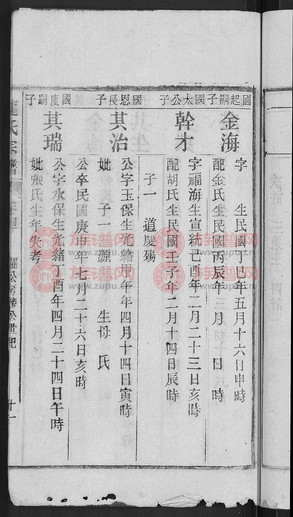 國起嗣子
金海
字 生民國丁巳年五月十六日申時
配金氏生民國丙辰年 月 日 時
國太公子
幹才
字福海生宣統己酉年二月二十三日亥時
配胡氏生民國壬子年二月十四日辰時
子一 道
國恩長子
其治
公字玉保生光緒甲午年四月十四日寅時
公卒民國庚申年七月二十六日亥時
妣 子一源 生母氏
國 嗣子
其瑞
公字水保生光緒丁酉年四月二十四日午時
妣張氏生年失考
氏宗譜
十一